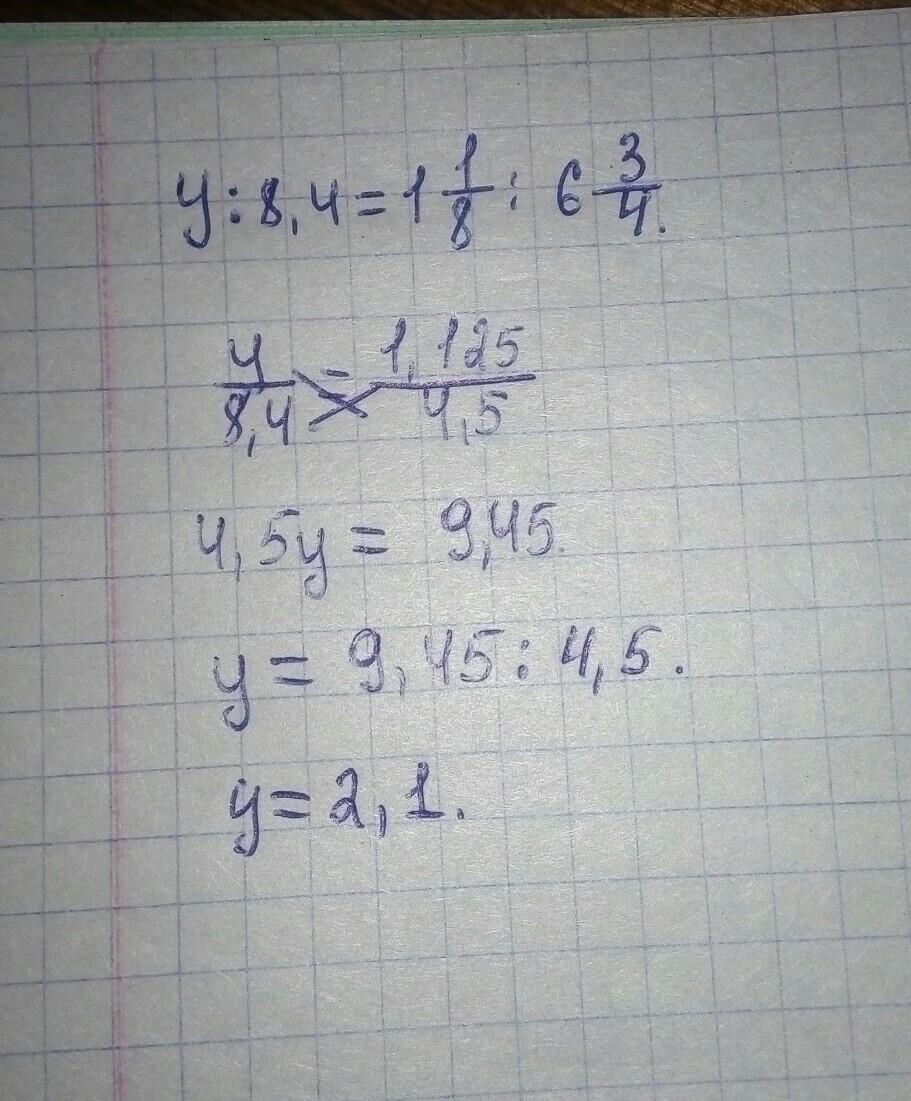 y:8,4=1 1/8 : 6 3/4.
y/8,4 = 1,125/4,5
4,5y= 9,45.
y= 9,45:4,5.
y=2,1.